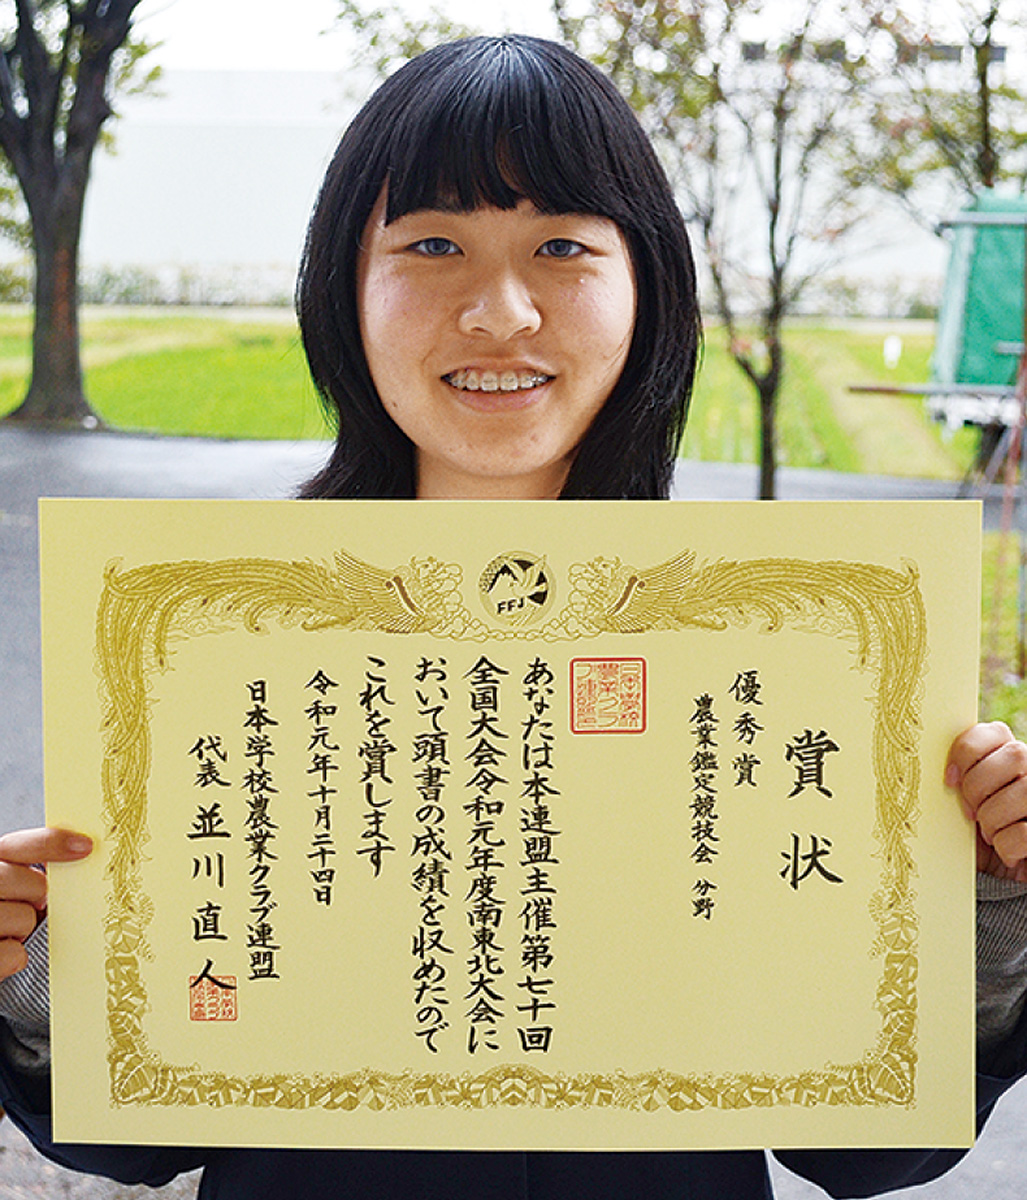 FFJ
賞状
優秀賞
農業鑑定競技会 分野
あなたは本連盟主催第七十回
全国大会令和元年度南東北大会に
おいて頭書の成績を収めたので
これを賞します
令和元年十月二十四日
日本学校農業クラブ連盟
代表 並川直人